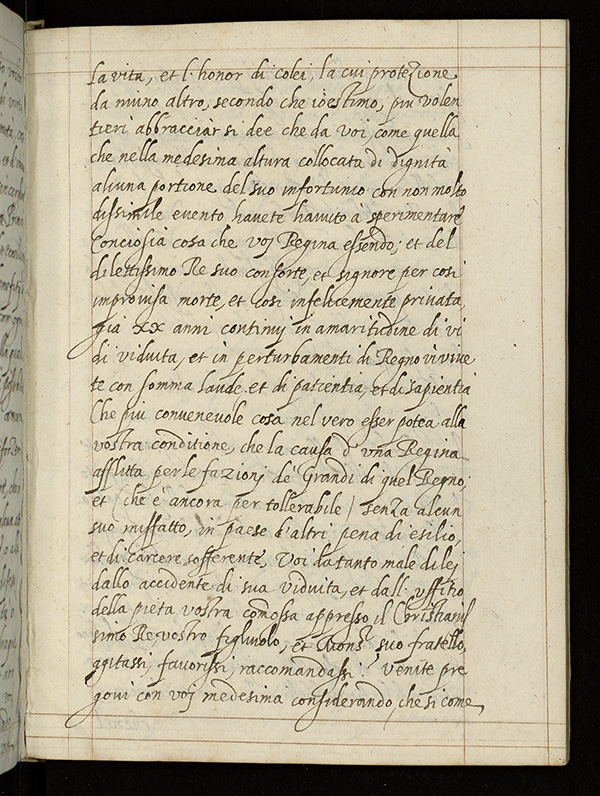 la vita, et l'honor di colei, la cui protezione
da niuno altro, secondo che io estimo, piu volen
tieri abbracciar si dee che da voi, come quella
che nella medesima altura collocata di dignità
alcuna portione del suo infortunio con non molto
dissimile evento havete havuto à sperimentare
Conciosia cosa che voi Regina essendo; et del
dilettissimo Re suo consorte, et signore per così
improvisa morte, et così infelicemente privata
già XX anni continuj in amaritudine di vi
di viduita, et in perturbamenti di Regno vivive
te con somma laude et di patientia, et di sapientia
Che più convenevole cosa nel vero esser potea alla
vostra conditione, che la causa d'una Regina
afflitta per le fazionj de' Grandi di quel Regno;
et (che è ancora per tollerabile) senza alcun
suo misfatto, in paese d'altri pena di esilio,
et di carcere sofferente, Voi da tanto male di lej
dallo accidente di sua viduita, et dall'uffitio
della pietà vostra comossa appresso il Christianis
simo Re vostro figliuolo, et Mons.r suo fratello,
agitassi, favorissi, raccomandassi. venite pre
govi con voj medesima considerando, che si come